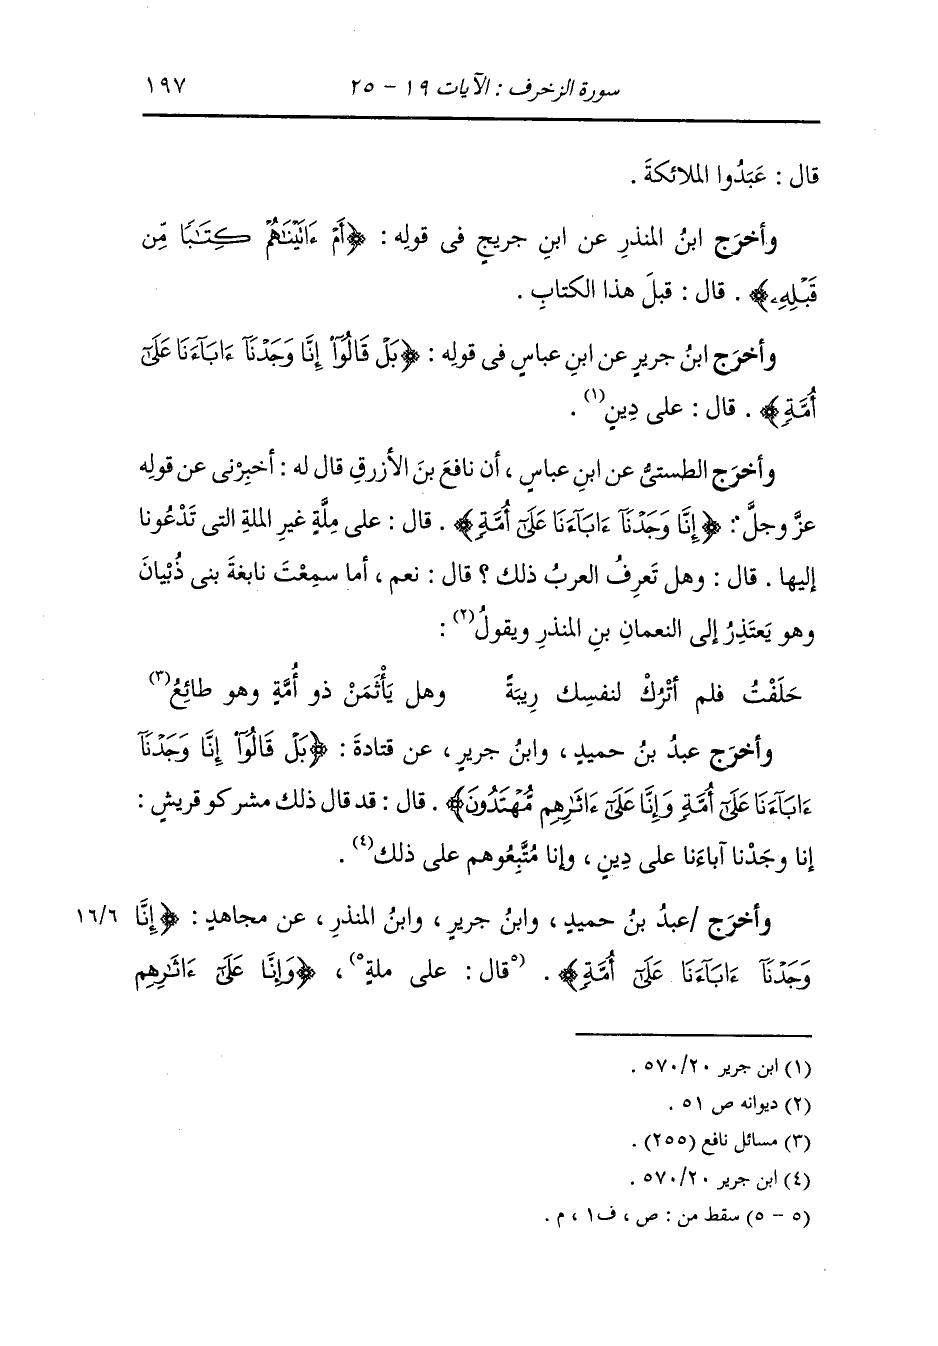 سورة الزخرف : الآيات ١٩ - ٢٥ ١٩٧
قال : عَبَدُوا الملائكةَ .
وأخرَج ابنُ المنذرِ عن ابنِ جريجٍ فى قولِه : ﴿أَمْ ءَاتَيْنَٰهُمْ كِتَٰبًا مِّن
قَبْلِهِۦ﴾ . قال : قبلَ هذا الكتابِ .
وأخرَج ابنُ جريرٍ عن ابنِ عباسٍ فى قولِه : ﴿بَلْ قَالُوٓا۟ إِنَّا وَجَدْنَآ ءَابَآءَنَا عَلَىٰٓ
أُمَّةٍ﴾ . قال : على دِينٍ(١) .
وأخرَج الطستىُّ عن ابنِ عباسٍ ، أن نافعَ بنَ الأزرقِ قال له : أخبِرْنى عن قولِه
عزَّ وجلَّ : ﴿إِنَّا وَجَدْنَآ ءَابَآءَنَا عَلَىٰٓ أُمَّةٍ﴾ . قال : على مِلَّةٍ غيرِ الملةِ التى تَدْعُونا
إليها . قال : وهل تَعرِفُ العربُ ذلك ؟ قال : نعم ، أما سمِعْتَ نابغةَ بنى ذُبْيانَ
وهو يَعتَذِرُ إلى النعمانِ بنِ المنذرِ ويقولُ(٢) :
حَلَفْتُ فلم أتْرُكْ لنفسِك رِيبَةً وهل يَأْثَمَنْ ذو أُمَّةٍ وهو طائِعُ(٣)
وأخرَج عبدُ بنُ حميدٍ ، وابنُ جريرٍ ، عن قتادةَ : ﴿بَلْ قَالُوٓا۟ إِنَّا وَجَدْنَآ
ءَابَآءَنَا عَلَىٰٓ أُمَّةٍ وَإِنَّا عَلَىٰٓ ءَاثَٰرِهِم مُّهْتَدُونَ﴾ . قال : قد قال ذلك مشركو قريشٍ :
إنا وجَدْنا آباءَنا على دِينٍ ، وإنا مُتَّبِعُوهم على ذلك(٤) .
وأخرَج /عبدُ بنُ حميدٍ ، وابنُ جريرٍ ، وابنُ المنذرِ ، عن مجاهدٍ : ﴿إِنَّا ١٦/٦
وَجَدْنَآ ءَابَآءَنَا عَلَىٰٓ أُمَّةٍ﴾ . (٥قال : على ملةٍ٥) ، ﴿وَإِنَّا عَلَىٰٓ ءَاثَٰرِهِم
(١) ابن جرير ٥٧٠/٢٠ .
(٢) ديوانه ص ٥١ .
(٣) مسائل نافع (٢٥٥) .
(٤) ابن جرير ٥٧٠/٢٠ .
(٥ - ٥) سقط من : ص ، ف١ ، م .